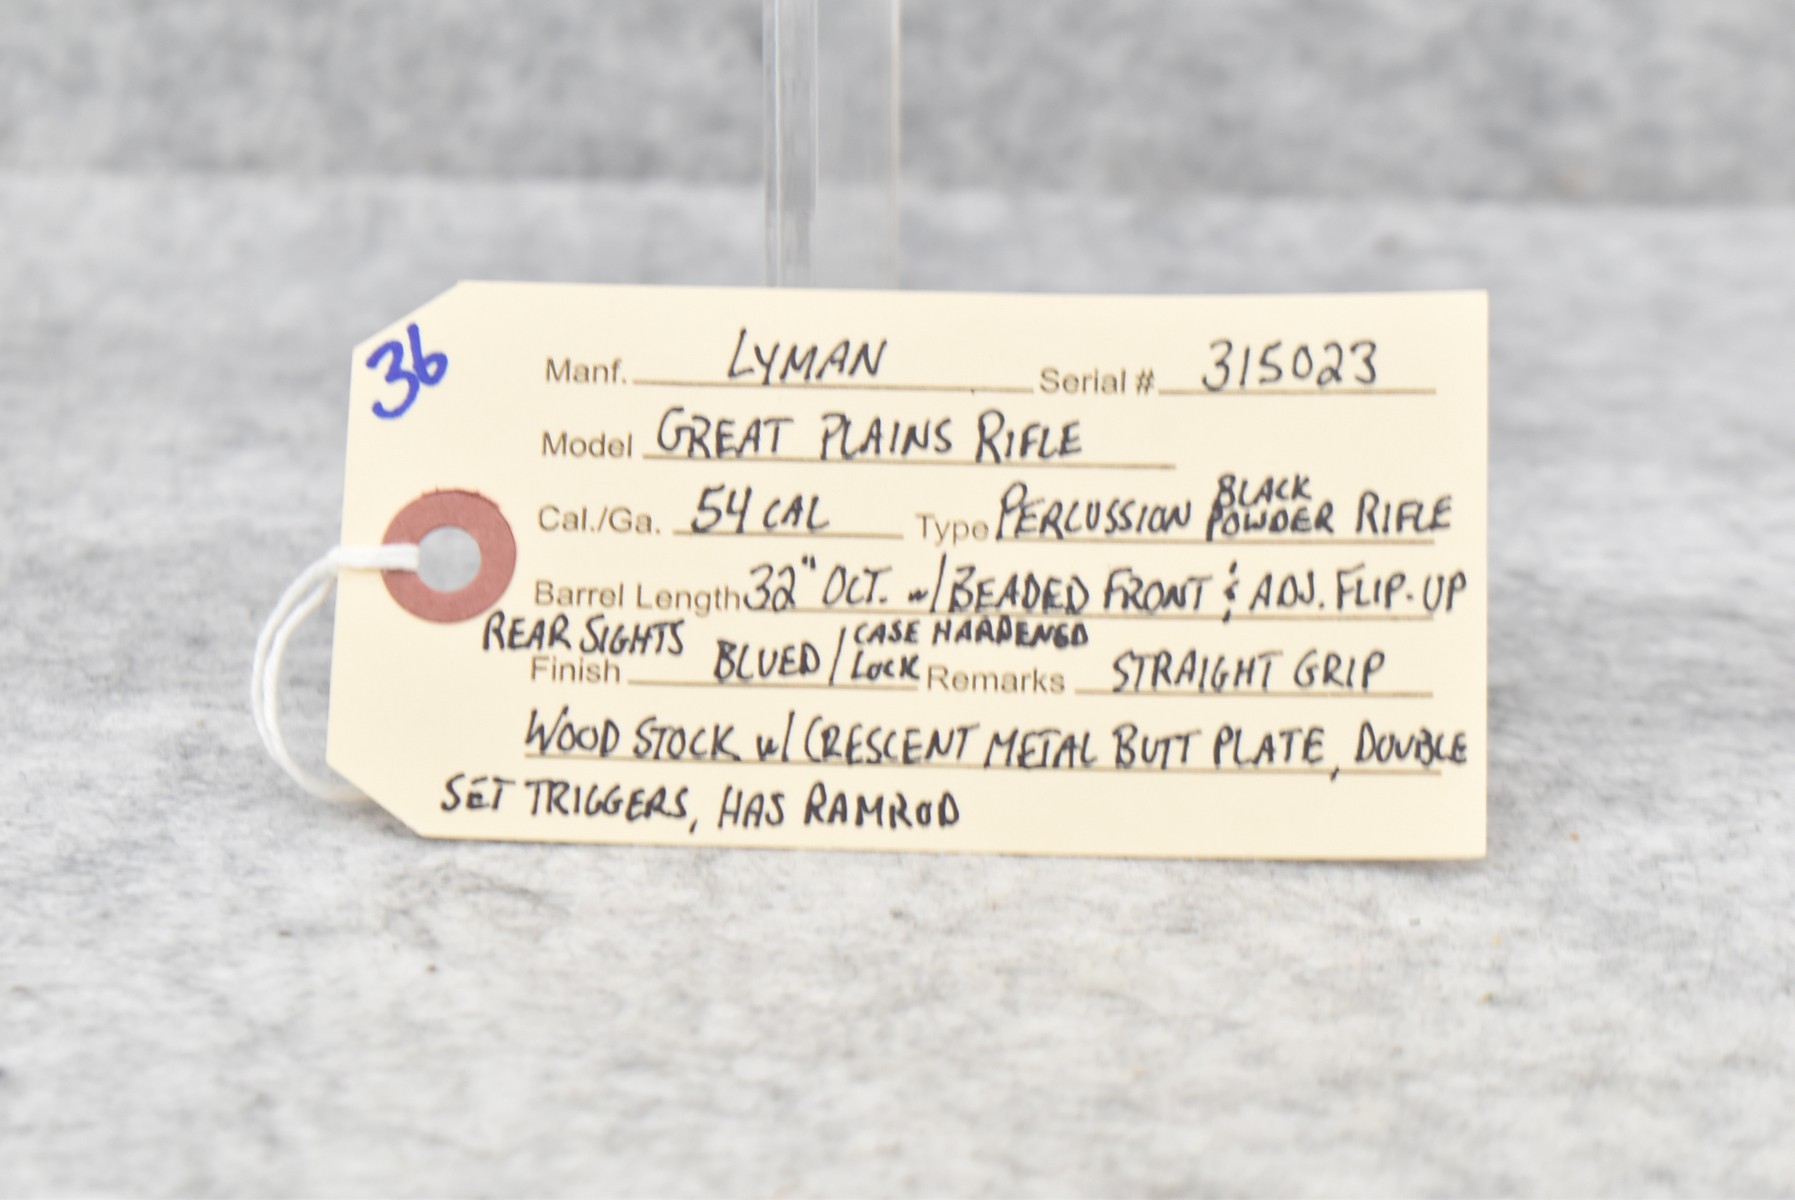 36
Manf. LYMAN Serial # 315023
Model GREAT PLAINS RIFLE
Cal./Ga. 54 CAL Type PERCUSSION BLACK POWDER RIFLE
Barrel Length 32" OCT. w/ BEADED FRONT & ADJ. FLIP-UP
REAR SIGHTS
Finish BLUED / CASE HARDENED LOCK Remarks STRAIGHT GRIP
WOOD STOCK w/ CRESCENT METAL BUTT PLATE, DOUBLE
SET TRIGGERS, HAS RAMROD